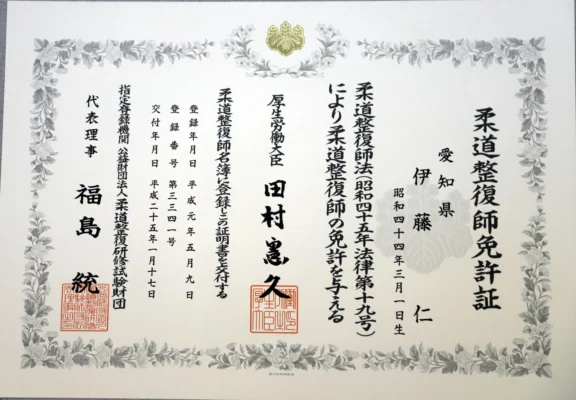 柔道整復師免許証
愛知県
伊藤 仁
昭和四十四年三月一日生
柔道整復師法(昭和四十五年法律第十九号)
により柔道整復師の免許を与える
厚生労働大臣 田村憲久
柔道整復師名簿に登録しこの証明書を交付する
登録年月日 平成元年五月九日
登録番号 第三三四一号
交付年月日 平成二十五年一月十七日
指定登録機関 公益財団法人柔道整復研修試験財団
代表理事 福島 統